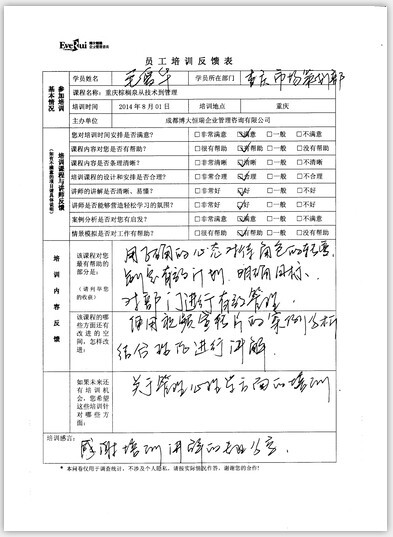 EveRui
员工培训反馈表
参加培训基本情况
学员姓名 学员所在部门 重庆市场策划部
课程名称：重庆棕榈泉从技术到管理
培训时间 2014年8月01日 培训地点 重庆
主办单位 成都博大恒瑞企业管理咨询有限公司
培训课程与讲师反馈
您对培训时间安排是否满意？ □非常满意 □满意 □一般 □不满意
课程内容对您是否有帮助？ □很有帮助 □有帮助 □一般 □没有帮助
课程内容是否条理清晰？ □非常清晰 □清晰 □一般 □不清晰
培训课程的设计和安排是否合理？ □非常合理 □合理 □一般 □不合理
讲师的讲解是否清晰、易懂？ □非常好 □好 □一般 □不好
讲师是否能够营造轻松学习的氛围？ □非常好 □好 □一般 □不好
案例分析是否对您有启发？ □非常满意 □满意 □一般 □不满意
情景模拟是否对工作有帮助？ □很有帮助 □有帮助 □一般 □没有帮助
培训内容反馈
该课程对您最有帮助的部分是：
（请列举您的收获）
用正确的心态对待角色的转变
制定有效的计划、明确目标、
对部门进行有效管理
该课程的哪些方面还有改进的空间，怎样改进：
使用视频 的案例分析
结合 进行讲解
如果未来还有培训机会，您希望这些培训针对哪些方面：
关于管理心理学方面的培训
培训感言：
感谢培训讲师的
* 本问卷仅用于调查统计，不涉及个人隐私，请按实际情况作答，谢谢您的合作！